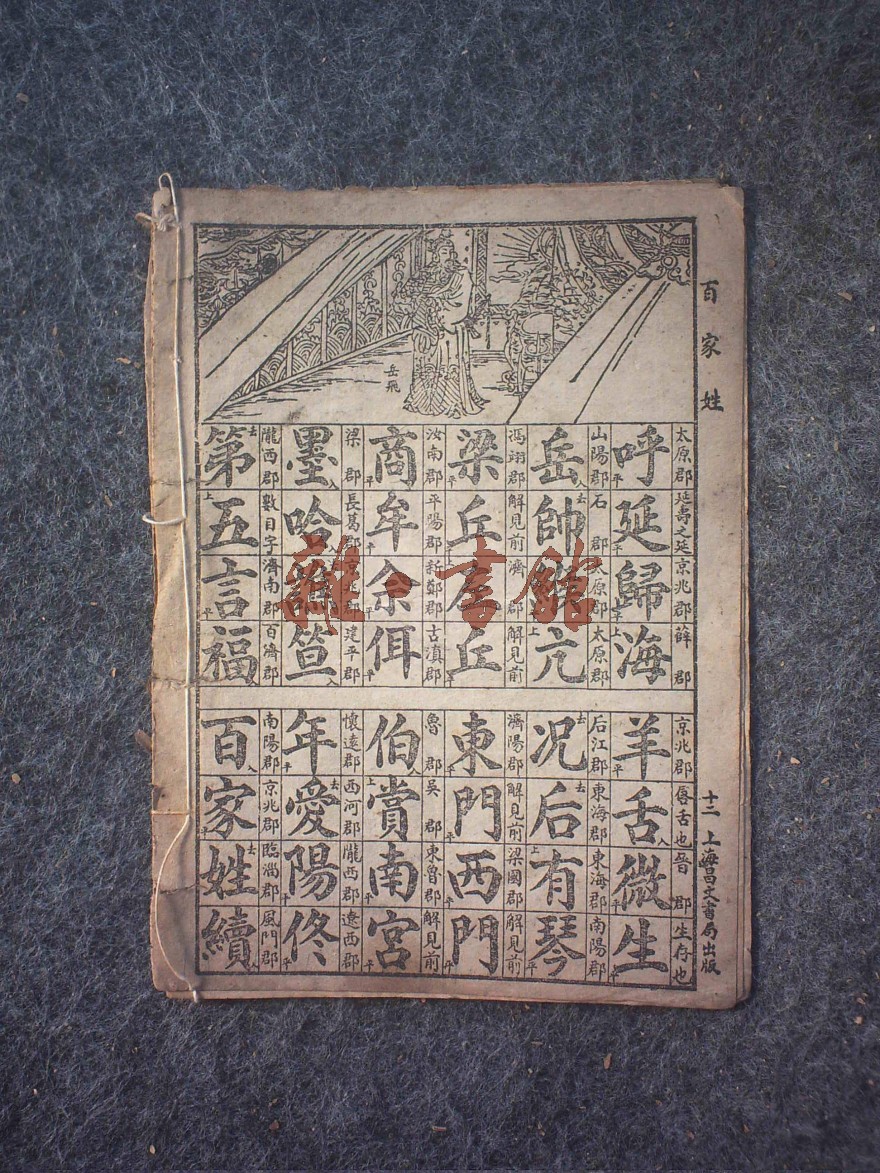 百家姓
十二 上海昌文書局出版
岳飛
太原郡 延壽之延 京兆郡 薛郡
呼延歸海
山陽郡 石郡 原郡 太原郡
岳帥緱亢
馮翊郡 解見前 濟郡 解見前
梁丘左丘
汝南郡 平陽郡 新鄭郡 古滇郡
商牟佘佴
梁郡 長葛郡 建平郡
墨哈譙笪
隴西郡 數目字 濟南郡 百濟郡
第五言福
京兆郡 唇舌也 晉郡 生存也
羊舌微生
后江郡 東海郡 東海郡 南陽郡
况后有琴
濟陽郡 解見前 梁國郡 解見前
東門西門
魯郡 吳郡 東魯郡 解見前
伯賞南宮
懷遠郡 西河郡 隴西郡 遼西郡
年愛陽佟
南陽郡 京兆郡 臨淄郡 風門郡
百家姓續
雜·書館